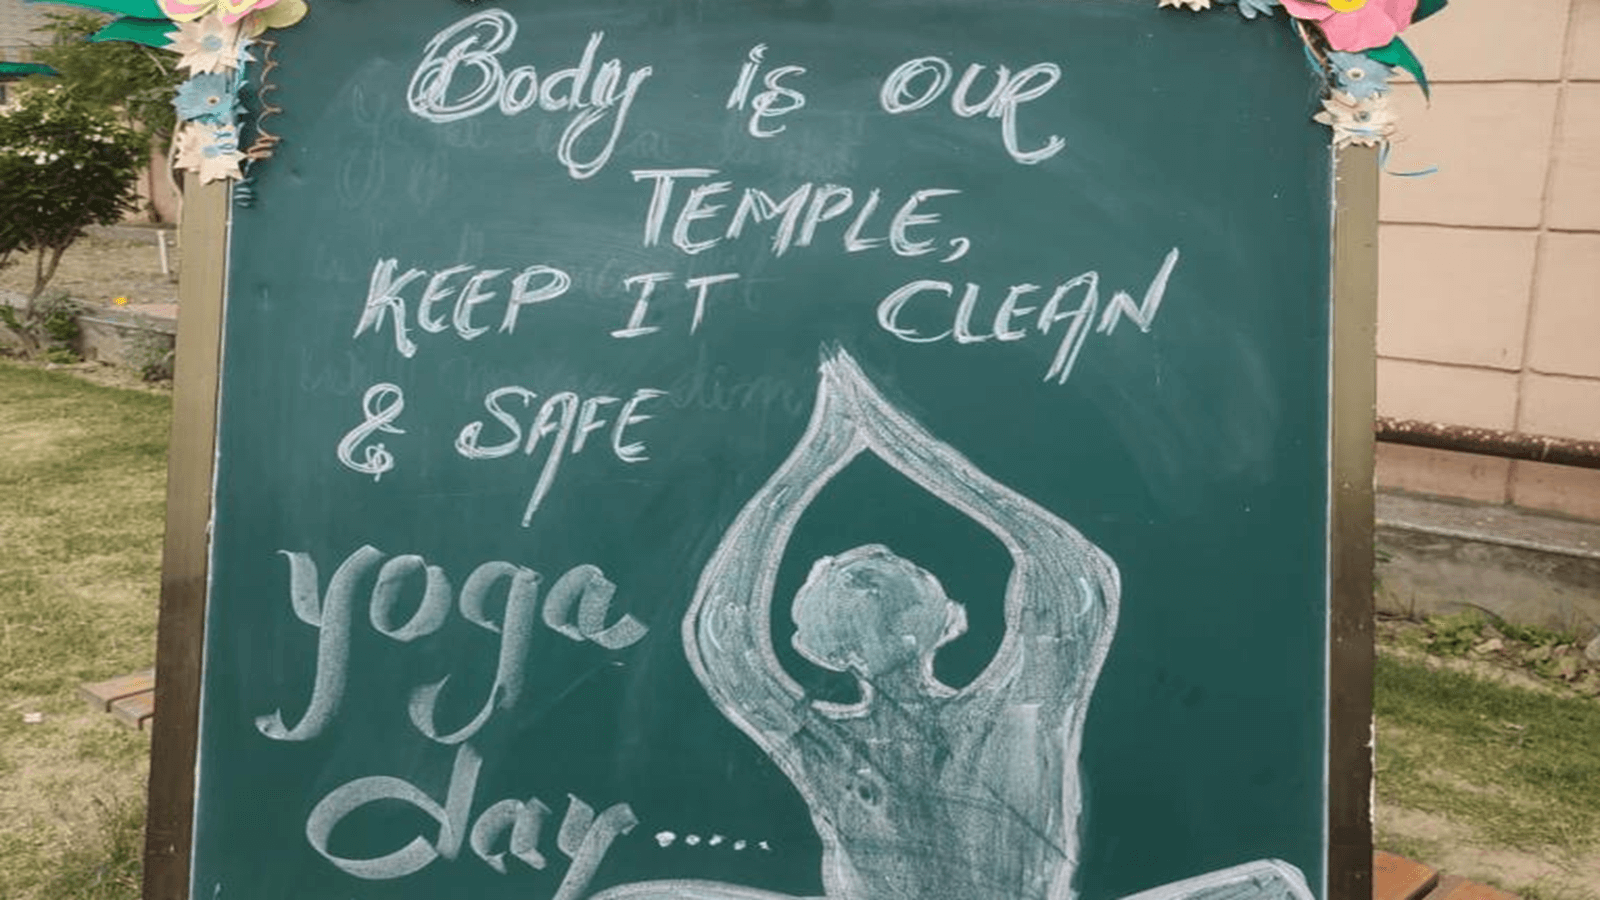 Body is OUR
TEMPLE,
KEEP IT CLEAN
& SAFE
yoga
day.....